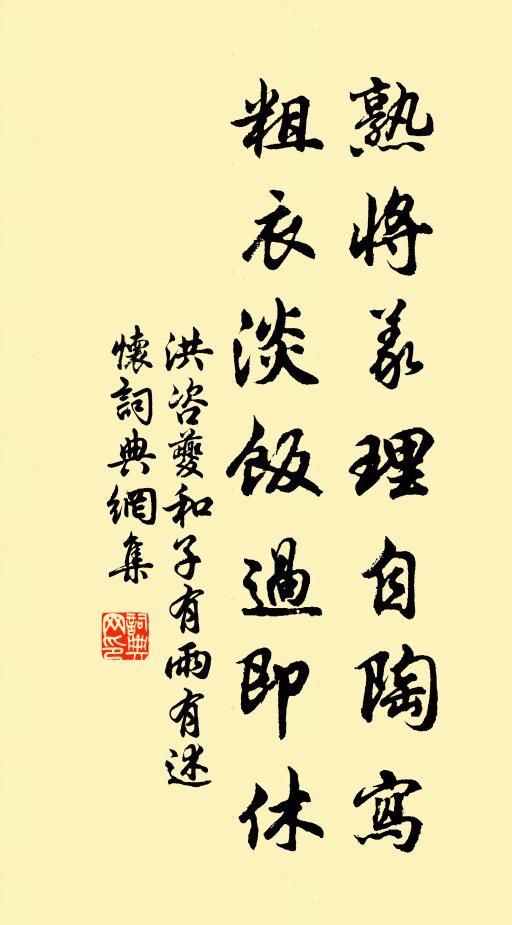 熟將義理自陶寫
粗衣淡飯過即休
洪咨夔和子有雨有述
懷詞典網集
詞典网印